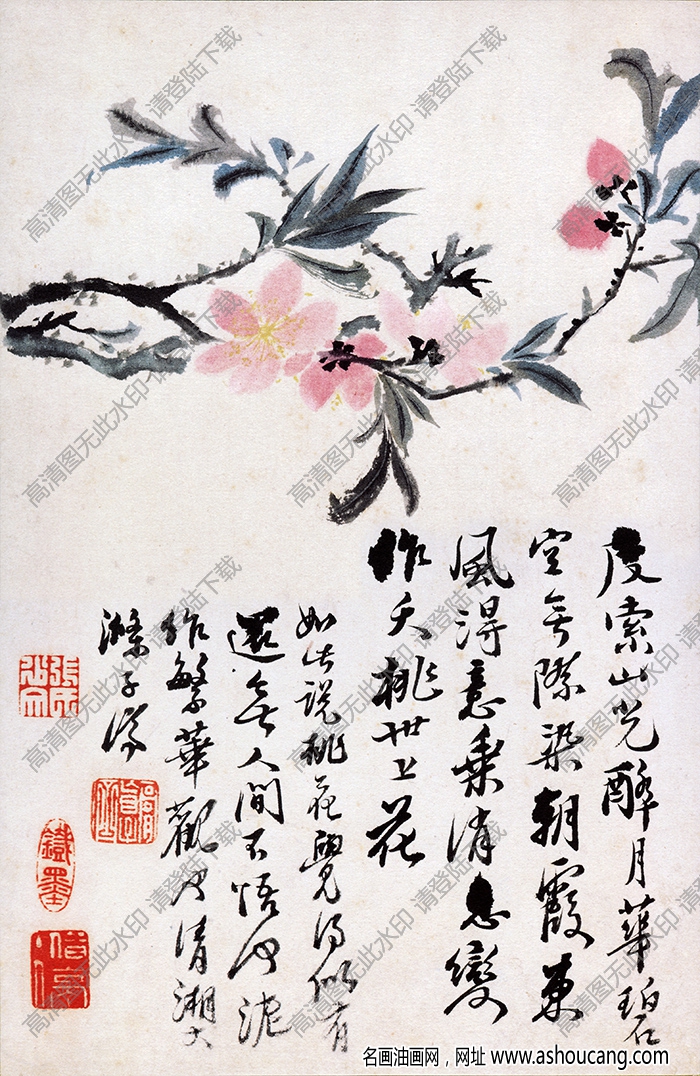 度索山光醉月華碧
空無際染朝霞東
風得意乘消息變
作夭桃世上花
如此說桃花覺得似有
還無人間不悟何泥
作繁華觀也清湘大
滌子濟
鐵墨
名画油画网，网址 www.ashoucang.com
高清图无此水印 请登陆下载